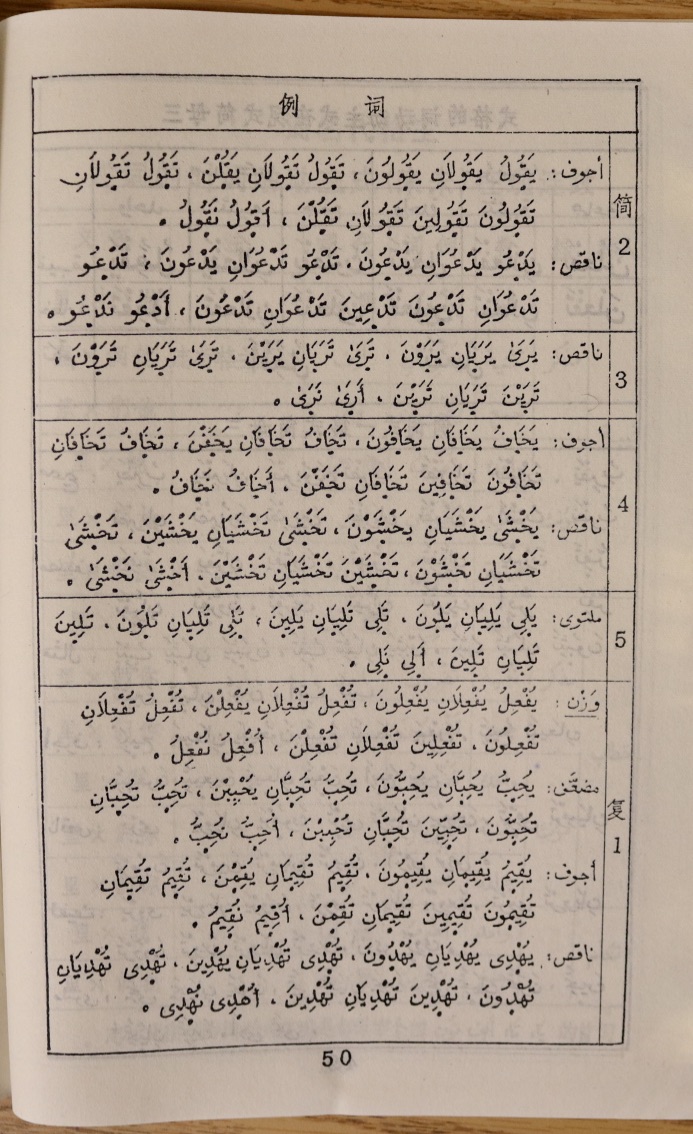 例 词
简 2
أجوف: يَقُولُ يَقُولاَنِ يَقُولُونَ، تَقُولُ تَقُولاَنِ يَقُلْنَ، تَقُولُ تَقُولاَنِ
تَقُولُونَ تَقُولِينَ تَقُولاَنِ تَقُلْنَ، أَقُولُ نَقُولُ.
ناقص: يَدْعُو يَدْعُوَانِ يَدْعُونَ، تَدْعُو تَدْعُوَانِ يَدْعُونَ، تَدْعُو
تَدْعُوَانِ تَدْعُونَ تَدْعِينَ تَدْعُوَانِ تَدْعُونَ، أَدْعُو نَدْعُو.
3
ناقص: يَرَىٰ يَرَيَانِ يَرَوْنَ، تَرَىٰ تَرَيَانِ يَرَيْنَ، تَرَىٰ تَرَيَانِ تَرَوْنَ،
تَرَيْنَ تَرَيَانِ تَرَيْنَ، أَرَىٰ نَرَىٰ.
4
أجوف: يَخَافُ يَخَافَانِ يَخَافُونَ، تَخَافُ تَخَافَانِ يَخَفْنَ، تَخَافُ تَخَافَانِ
تَخَافُونَ تَخَافِينَ تَخَافَانِ تَخَفْنَ، أَخَافُ نَخَافُ.
ناقص: يَخْشَىٰ يَخْشَيَانِ يَخْشَوْنَ، تَخْشَىٰ تَخْشَيَانِ يَخْشَيْنَ، تَخْشَىٰ
تَخْشَيَانِ تَخْشَوْنَ، تَخْشَيْنَ تَخْشَيَانِ تَخْشَيْنَ، أَخْشَىٰ نَخْشَىٰ.
5
ملتوى: يَلِى يَلِيَانِ يَلُونَ، تَلِى تَلِيَانِ يَلِينَ، تَلِى تَلِيَانِ تَلُونَ، تَلِينَ
تَلِيَانِ تَلِينَ، أَلِى نَلِى.
复 1
وَزْن: يُفْعِلُ يُفْعِلاَنِ يُفْعِلُونَ، تُفْعِلُ تُفْعِلاَنِ يُفْعِلْنَ، تُفْعِلُ تُفْعِلاَنِ
تُفْعِلُونَ، تُفْعِلِينَ تُفْعِلاَنِ تُفْعِلْنَ، أُفْعِلُ نُفْعِلُ.
مضعّف: يُحِبُّ يُحِبَّانِ يُحِبُّونَ، تُحِبُّ تُحِبَّانِ يُحْبِبْنَ، تُحِبُّ تُحِبَّانِ
تُحِبُّونَ، تُحِبِّينَ تُحِبَّانِ تُحْبِبْنَ، أُحِبُّ نُحِبُّ.
أجوف: يُقِيمُ يُقِيمَانِ يُقِيمُونَ، تُقِيمُ تُقِيمَانِ يُقِمْنَ، تُقِيمُ تُقِيمَانِ
تُقِيمُونَ تُقِيمِينَ تُقِيمَانِ تُقِمْنَ، أُقِيمُ نُقِيمُ.
ناقص: يُهْدِى يُهْدِيَانِ يُهْدُونَ، تُهْدِى تُهْدِيَانِ يُهْدِينَ، تُهْدِى تُهْدِيَانِ
تُهْدُونَ، تُهْدِينَ تُهْدِيَانِ تُهْدِينَ، أُهْدِى نُهْدِى.
50